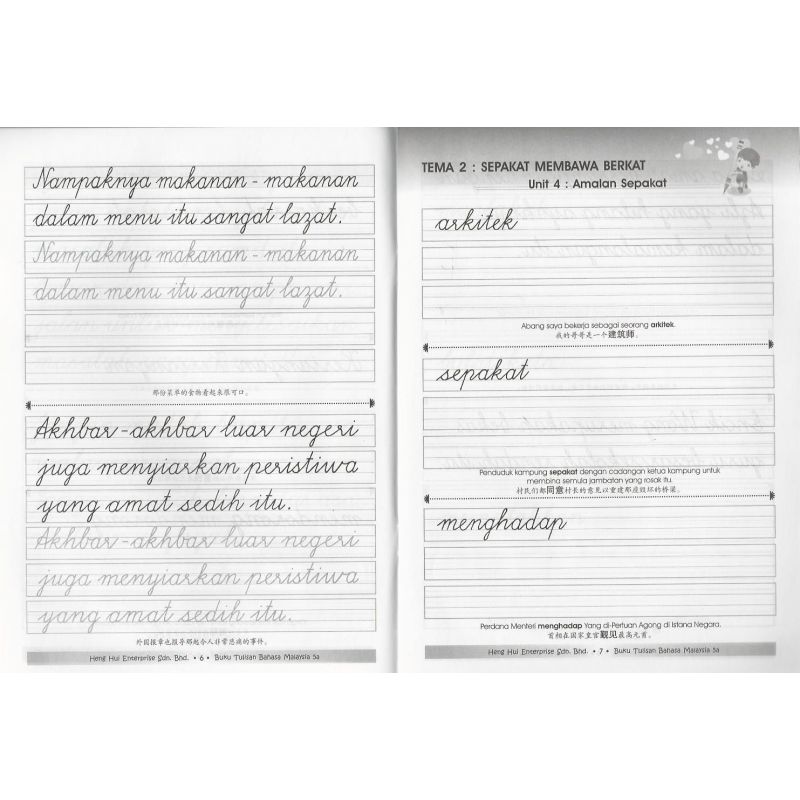 Nampaknya makanan - makanan
dalam menu itu sangat lazat.
Nampaknya makanan - makanan
dalam menu itu sangat lazat.
那份菜单的食物看起来很可口。
Akhbar-akhbar luar negeri
juga menyiarkan peristiwa
yang amat sedih itu.
Akhbar-akhbar luar negeri
juga menyiarkan peristiwa
yang amat sedih itu.
外国报章也报导那起令人非常悲痛的事件。
Heng Hui Enterprise Sdn. Bhd. • 6 • Buku Tulisan Bahasa Malaysia 5a
TEMA 2 : SEPAKAT MEMBAWA BERKAT
Unit 4 : Amalan Sepakat
arkitek
Abang saya bekerja sebagai seorang arkitek.
我的哥哥是一个建筑师。
sepakat
Penduduk kampung sepakat dengan cadangan ketua kampung untuk
membina semula jambatan yang rosak itu.
村民们都同意村长的意见以重建那座毁坏的桥梁。
menghadap
Perdana Menteri menghadap Yang di-Pertuan Agong di Istana Negara.
首相在国家皇宫觐见最高元首。
Heng Hui Enterprise Sdn. Bhd. • 7 • Buku Tulisan Bahasa Malaysia 5a